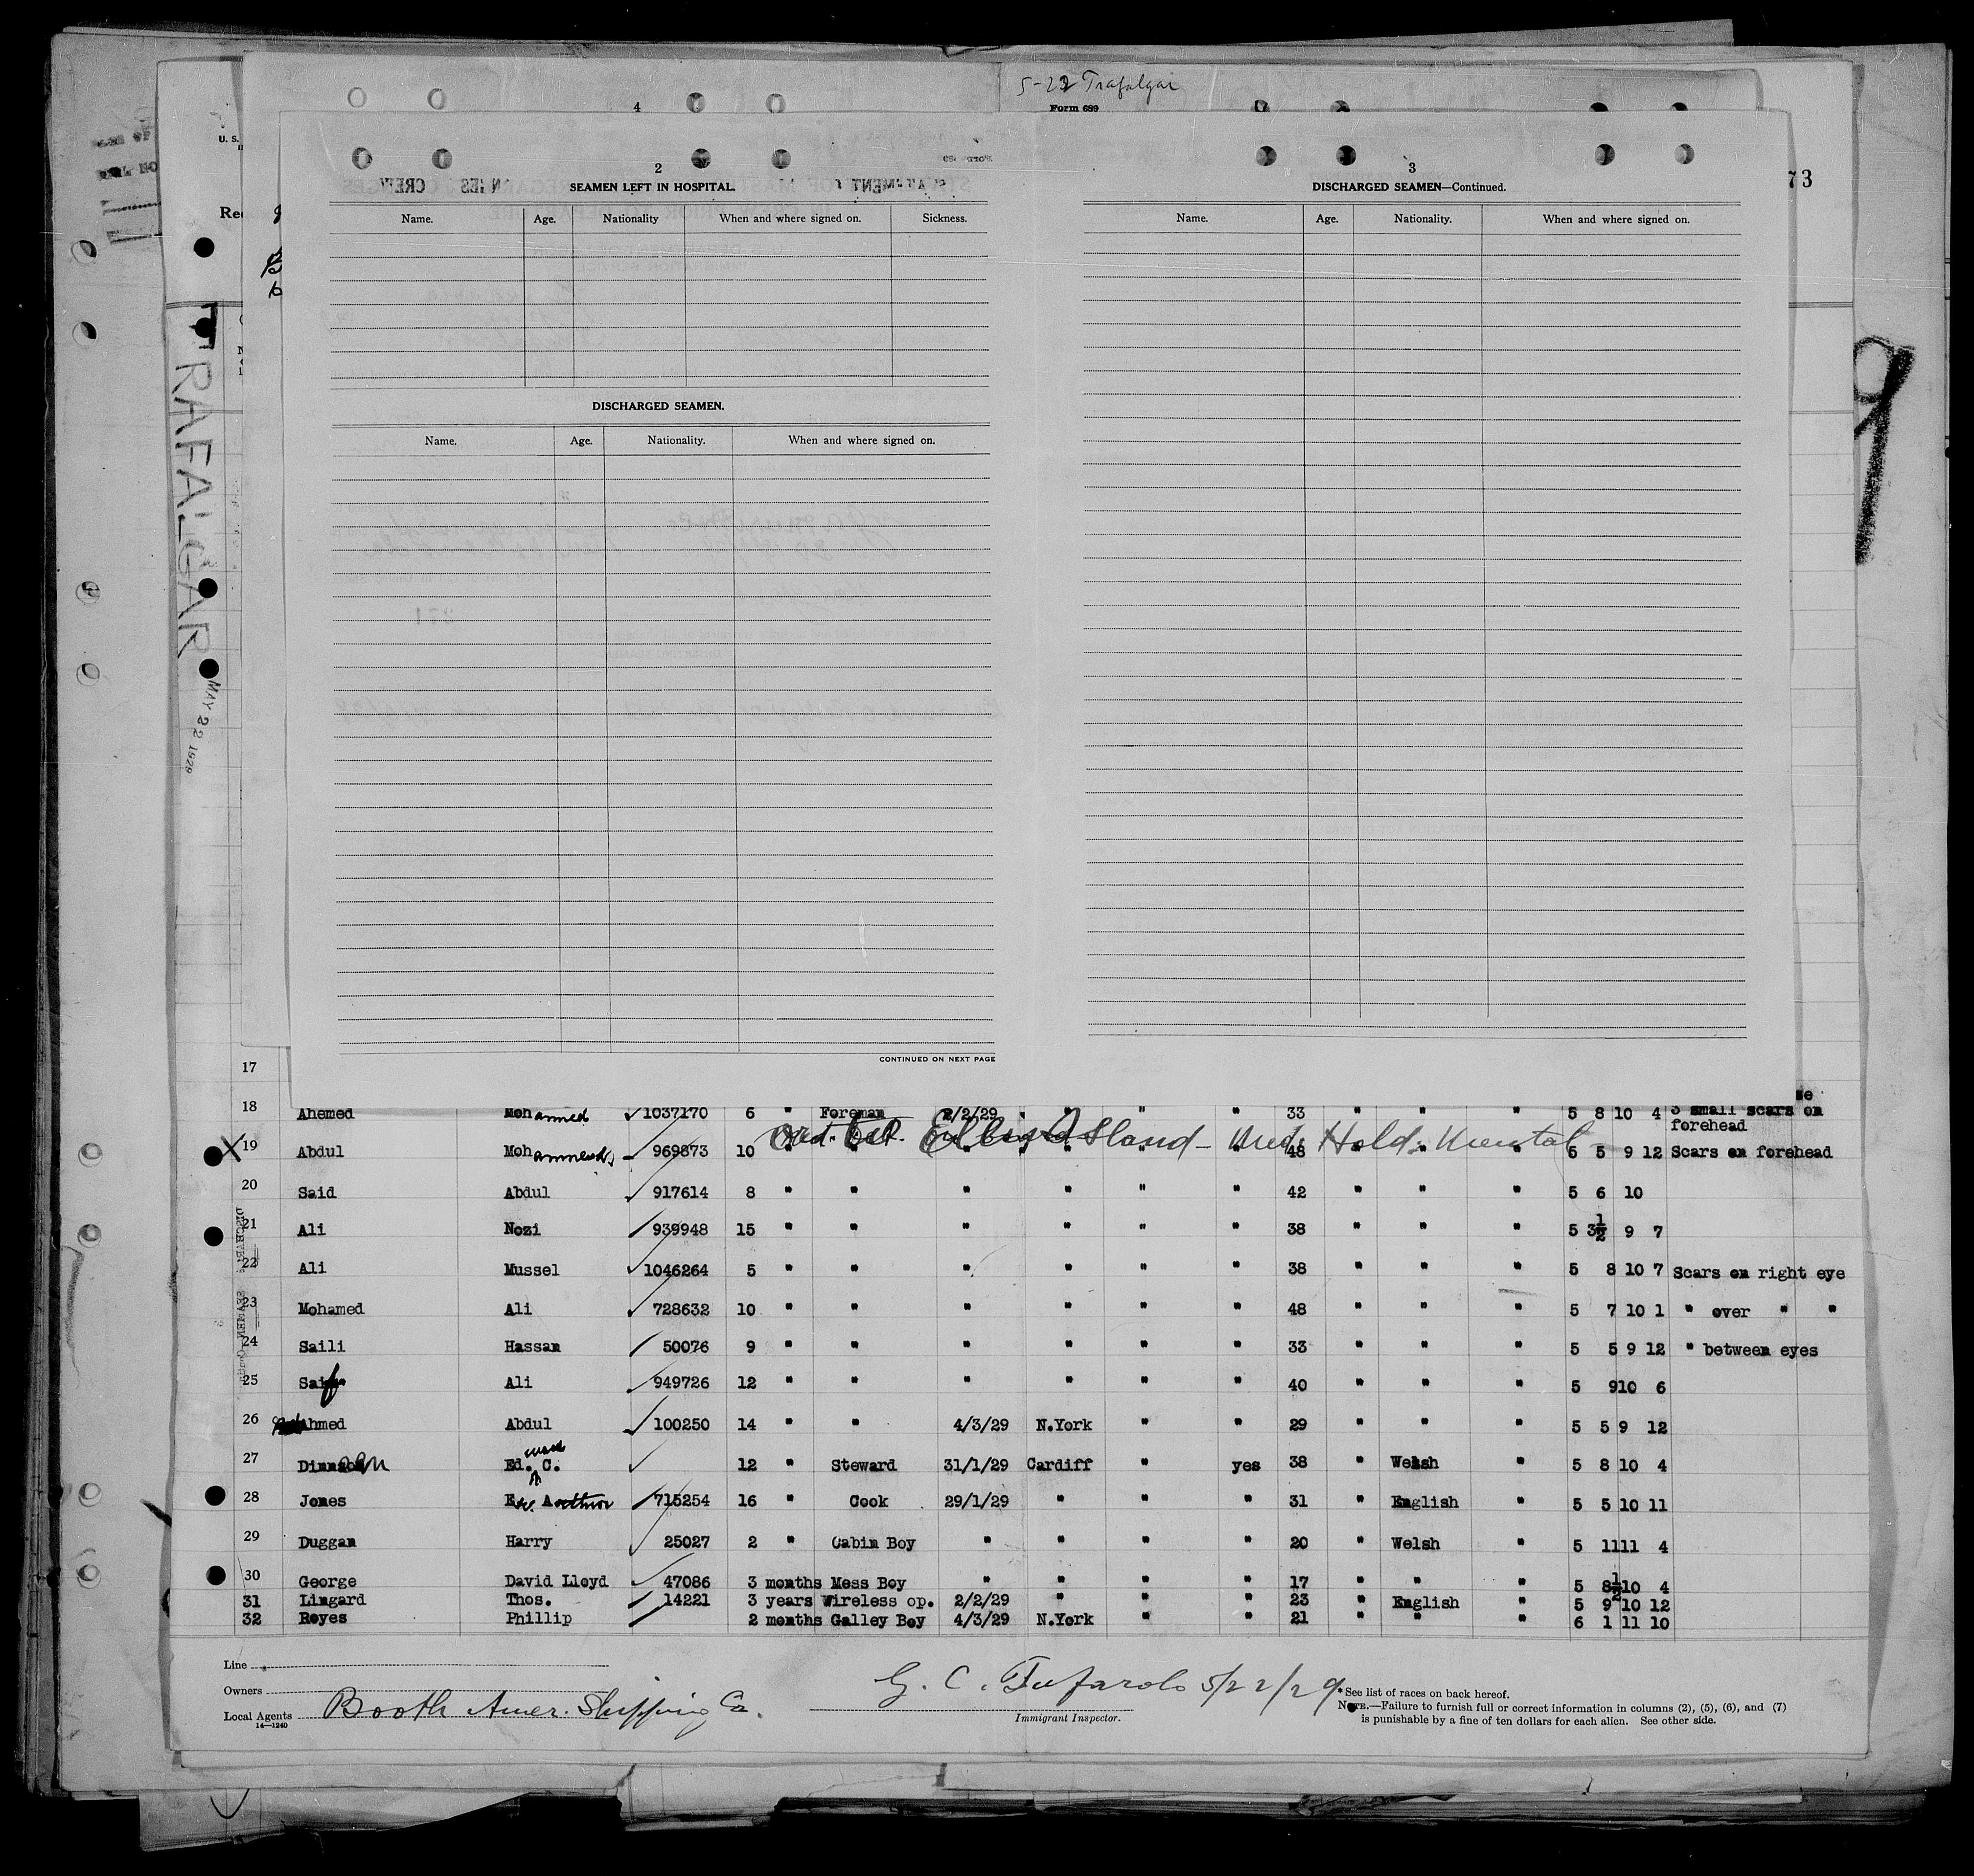 5-22 Trafalgar
Form 689
4
U. S.
73
TRAFALGAR
MAY 22 1929
2
SEAMEN LEFT IN HOSPITAL.
Name. Age. Nationality When and where signed on. Sickness.
DISCHARGED SEAMEN.
Name. Age. Nationality. When and where signed on.
CONTINUED ON NEXT PAGE
3
DISCHARGED SEAMEN—Continued.
Name. Age. Nationality. When and where signed on.
17
18 Ahemed Mohammed ✓ 1037170 6 " Foreman 2/2/29 " " " 33 " " " 5 8 10 4 3 small scars on
forehead
Ellis Island - Med. Hold. Mental
X 19 Abdul Mohammed ✓ 969873 10 " " " " " " 48 " " " 5 5 9 12 Scars on forehead
20 Said Abdul ✓ 917614 8 " " " " " " 42 " " " 5 6 10
21 Ali Nozi ✓ 939948 15 " " " " " " 38 " " " 5 3½ 9 7
22 Ali Mussel ✓ 1046264 5 " " " " " " 38 " " " 5 8 10 7 Scars on right eye
23 Mohamed Ali ✓ 728632 10 " " " " " " 48 " " " 5 7 10 1 " over " "
24 Saili Hassan ✓ 50076 9 " " " " " " 33 " " " 5 5 9 12 " between eyes
25 Saif Ali ✓ 949726 12 " " " " " " 40 " " " 5 9 10 6
26 Ahmed Abdul ✓ 100250 14 " " 4/3/29 N.York " " 29 " " " 5 5 9 12
27 Ed.ward C. ✓ 12 " Steward 31/1/29 Cardiff " yes 38 " Welsh " 5 8 10 4
28 Jones Arthur ✓ 715254 16 " Cook 29/1/29 " " " 31 " English " 5 5 10 11
29 Duggan Harry ✓ 25027 2 " Cabin Boy " " " " 20 " Welsh " 5 11 11 4
30 George David Lloyd ✓ 47086 3 months Mess Boy " " " " 17 " " " 5 8½ 10 4
31 Lingard Thos. ✓ 14221 3 years Wireless op. 2/2/29 " " " 23 " English " 5 9 10 12
32 Reyes Phillip ✓ 2 months Galley Boy 4/3/29 N.York " " 21 " " " 6 1 11 10
Line
Owners
Local Agents Booth Amer. Shipping Co.
14—1240
G. C. Tufarolo 5/22/29
Immigrant Inspector.
*See list of races on back hereof.
NOTE.—Failure to furnish full or correct information in columns (2), (5), (6), and (7)
is punishable by a fine of ten dollars for each alien. See other side.